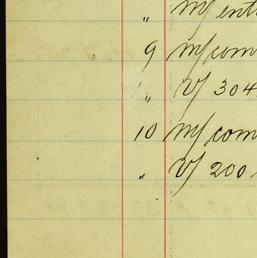 " m/ ent
9 m/ com
" v/ 304
10 m/ com
" v/ 200